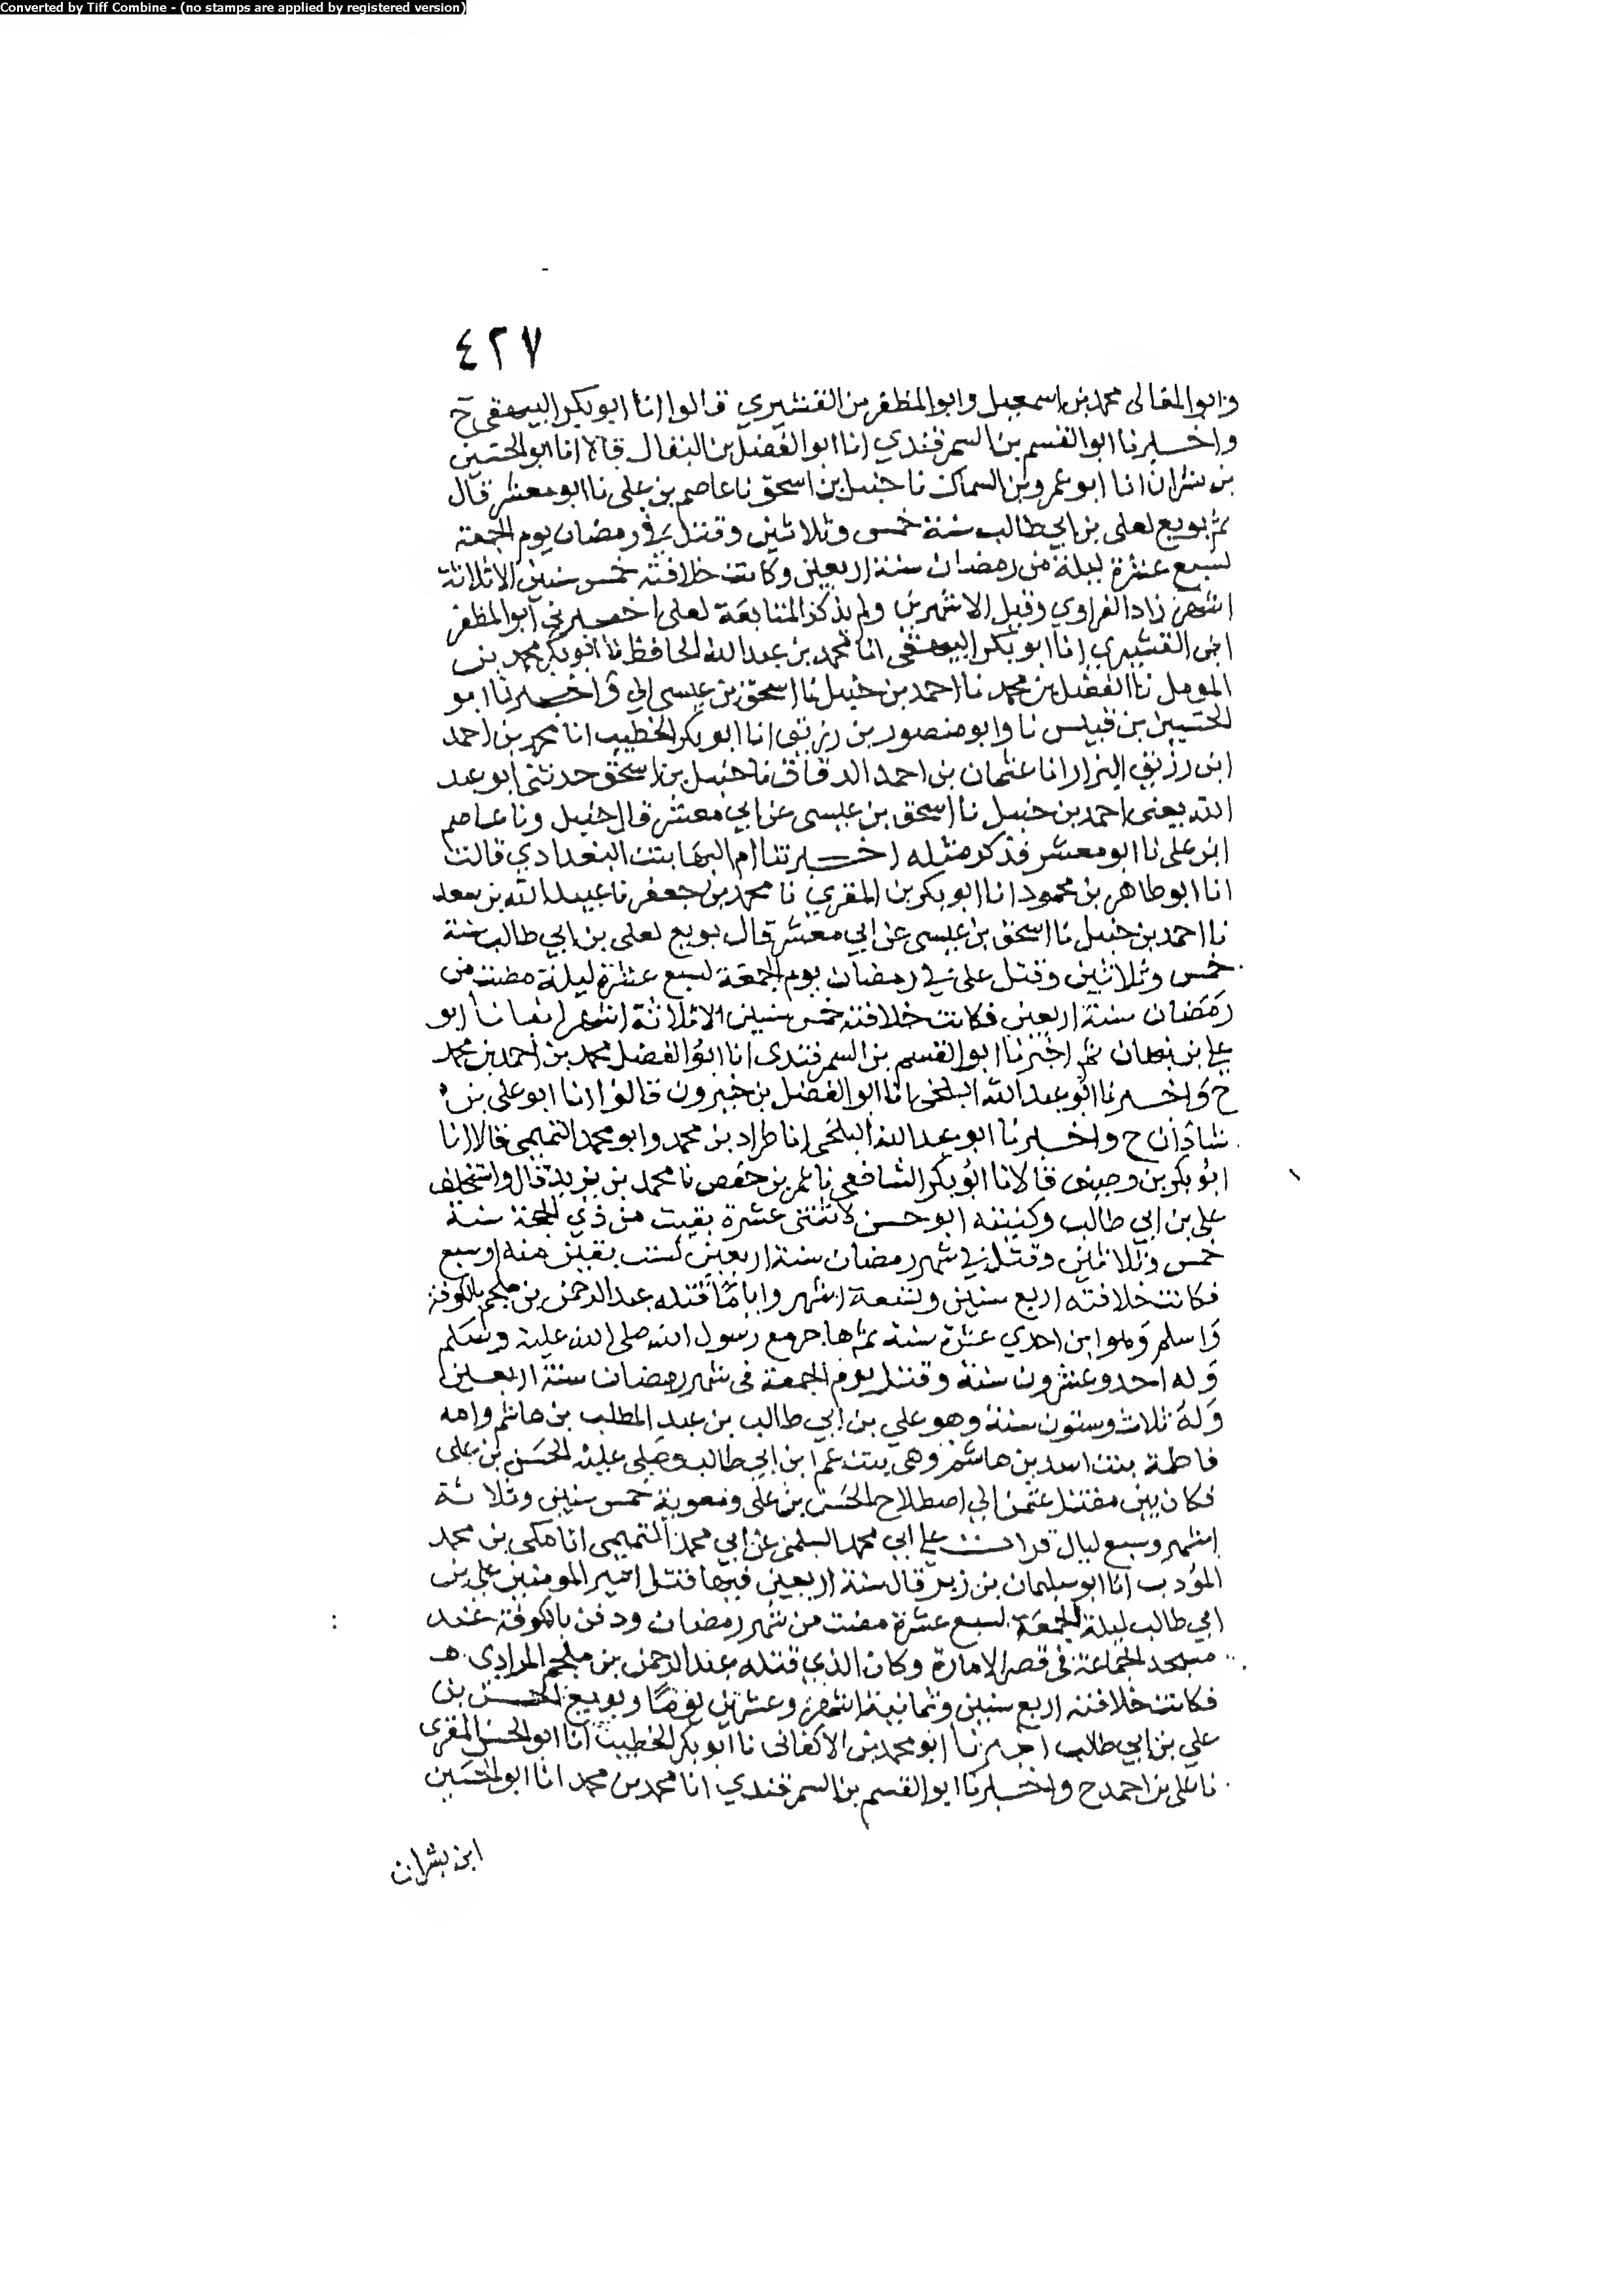 Converted by Tiff Combine - (no stamps are applied by registered version)
٤٢٧
وابو المعالى محمد بن اسمعيل وابو المظفر بن القشيري قالوا انا ابو بكر البيهقى ح
واخبرنا ابو القسم بن السمرقندي انا ابو الفضل بن البقال قالا انا ابو الحسين
بن بشران انا ابو عمرو بن السماك نا حنبل بن اسحق نا عاصم بن على نا ابو معشر قال
ثم بويع لعلى بن ابي طالب سنة خمس وثلاثين وقتل في رمضان يوم الجمعة
لسبع عشرة ليلة من رمضان سنة اربعين وكانت خلافته خمس سنين الا ثلاثة
اشهر زاد الفراوي وقيل الا شهرين ولم يذكر المتابعة لعلى اخبرني ابو المظفر
ابن القشيري انا ابو بكر البيهقى انا محمد بن عبد الله الحافظ نا ابو بكر محمد بن
المومل نا الفضل بن محمد نا احمد بن حنبل نا اسحق بن عيسى الي واخبرنا ابو
الحسين بن قبيس نا وابو منصور بن زريق انا ابو بكر الخطيب انا محمد بن احمد
ابن رزيق البزار انا عثمان بن احمد الدقاق نا حنبل بن اسحق حدثني ابو عبد
الله يعنى احمد بن حنبل نا اسحق بن عيسى عن ابي معشر قال حنبل ونا عاصم
ابن على نا ابو معشر فذكر مثله اخبرتنا ام البها بنت البغدادي قالت
انا ابو طاهر بن محمود انا ابو بكر بن المقري نا محمد بن جعفر نا عبيد الله بن سعد
نا احمد بن حنبل نا اسحق بن عيسى عن ابي معشر قال بويع لعلى بن ابي طالب سنة
خمس وثلاثين وقتل على في رمضان يوم الجمعة لسبع عشرة ليلة مضت من
رمضان سنة اربعين فكانت خلافته خمس سنين الا ثلاثة اشهر انبانا ابو
علي بن نبهان ثم اخبرنا ابو القسم بن السمرقندى انا ابو الفضل محمد بن احمد بن محمد
ح واخبرنا ابو عبد الله البلخي انا ابو الفضل بن خيرون قالوا انا ابو على بن
شاذان ح واخبرنا ابو عبد الله البلخى انا طراد بن محمد وابو محمد التميمى قالا انا
ابو بكر بن وصيف قالا نا ابو بكر الشافعى نا عمر بن حفص نا محمد بن يزيد قال واستخلف
على بن ابي طالب وكنيته ابو حسن لاثنتى عشرة بقيت من ذي الحجة سنة
خمس وثلاثين وقتل في شهر رمضان سنة اربعين لست بقين منه او سبع
فكانت خلافته اربع سنين وتسعة اشهر واياما قتله عبد الرحمن بن ملجم بالكوفة
واسلم وهو ابن احدي عشرة سنة ثم هاجر مع رسول الله صلى الله عليه وسلم
وله احد وعشرون سنة وقتل يوم الجمعة فى شهر رمضان سنة اربعين
وله ثلاث وستون سنة وهو علي بن ابي طالب بن عبد المطلب بن هاشم وامه
فاطمة بنت اسد بن هاشم وهى بنت عم ابن ابي طالب وصلى عليه الحسن بن على
فكان بين مقتل عثمن الي اصطلاح الحسن بن على ومعوية خمس سنين وثلاثة
اشهر وسبع ليال قرات علي ابي محمد السلمى عن ابي محمد التميمى انا مكى بن محمد
المؤدب انا ابو سليمان بن زبر قال سنة اربعين فيها قتل امير المومنين علي بن
ابي طالب ليلة الجمعة لسبع عشرة مضت من شهر رمضان ودفن بالكوفة عند
مسجد الجماعة فى قصر الامارة وكان الذي قتله عبد الرحمن بن ملجم المرادي ه
فكانت خلافته اربع سنين وثمانية اشهر وعشرين يوما وبويع الحسن بن
علي بن ابي طالب اخبرنا ابو محمد بن الاكفانى نا ابو بكر الخطيب انا ابو الحسن المقرى
نا على بن احمد ح واخبرنا ابو القسم بن السمرقندي انا محمد بن محمد انا ابو الحسين
ابن بشران